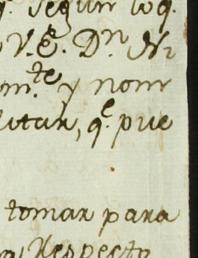 q. Segun lo q.
V.E. Dn. Ni
m.te y nom
, q.e pue
tomar para
Respecto